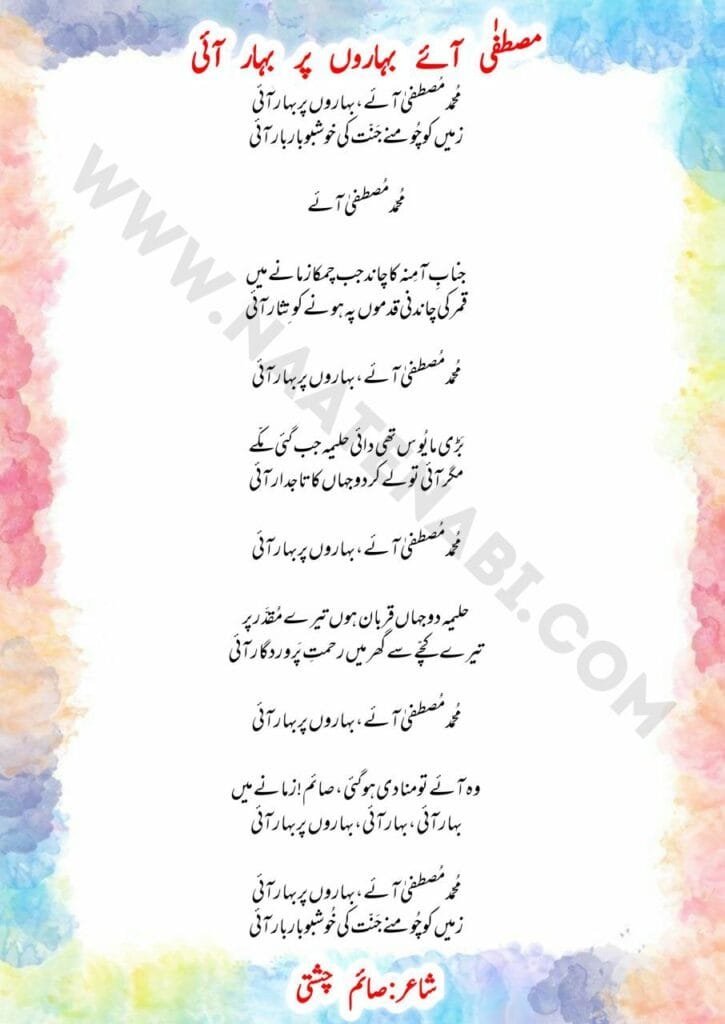 مصطفٰی آئے بہاروں پر بہار آئی
مُحمّد مُصطفیٰ آئے، بہاروں پر بہار آئی
زمیں کو چُومنے جَنّت کی خوشبو بار بار آئی
مُحمّد مُصطفیٰ آئے
جنابِ آمِنہ کا چاند جب چمکا زمانے میں
قمر کی چاندنی قدموں پہ ہونے کو نِثار آئی
مُحمّد مُصطفیٰ آئے، بہاروں پر بہار آئی
بَڑی مایُوس تھی دائی حلیمہ جب گئی مکّے
مگر آئی تو لے کر دو جہاں کا تاجدار آئی
مُحمّد مُصطفیٰ آئے، بہاروں پر بہار آئی
حلیمہ دو جہاں قربان ہوں تیرے مُقدَّر پر
تیرے کچّے سے گھر میں رحمتِ پَروردگار آئی
مُحمّد مُصطفیٰ آئے، بہاروں پر بہار آئی
وہ آئے تو منادی ہو گئی، صائم! زمانے میں
بہار آئی، بہار آئی، بہاروں پر بہار آئی
مُحمّد مُصطفیٰ آئے، بہاروں پر بہار آئی
زمیں کو چُومنے جَنّت کی خُوشبو بار بار آئی
شاعر:صائم چشتی
WWW.NAATENABI.COM